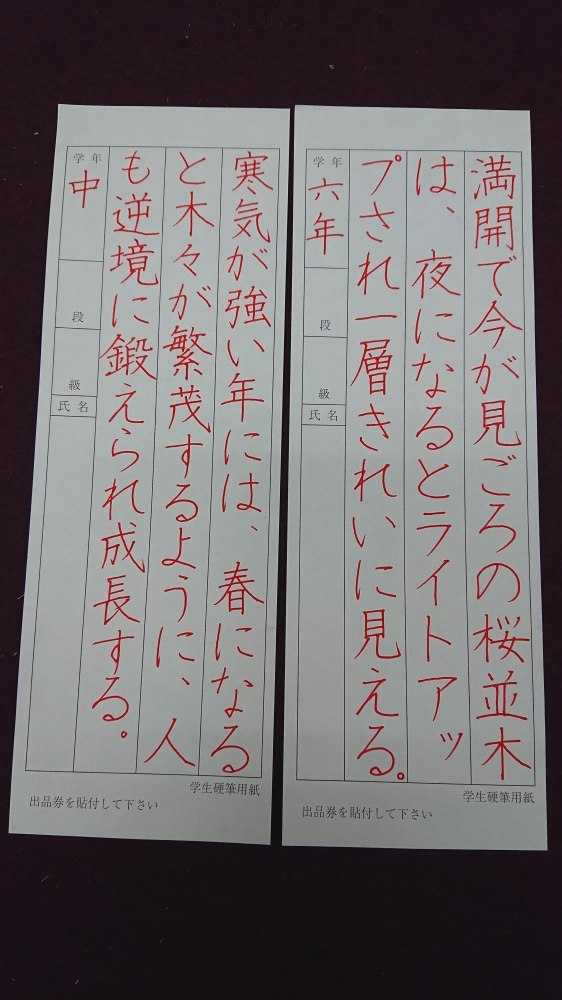 満開で今が見ごろの桜並木
は、夜になるとライトアッ
プされ一層きれいに見える。
学年
六年
段
級
氏名
学生硬筆用紙
出品券を貼付して下さい
寒気が強い年には、春になる
と木々が繁茂するように、人
も逆境に鍛えられ成長する。
学年
中
段
級
氏名
学生硬筆用紙
出品券を貼付して下さい